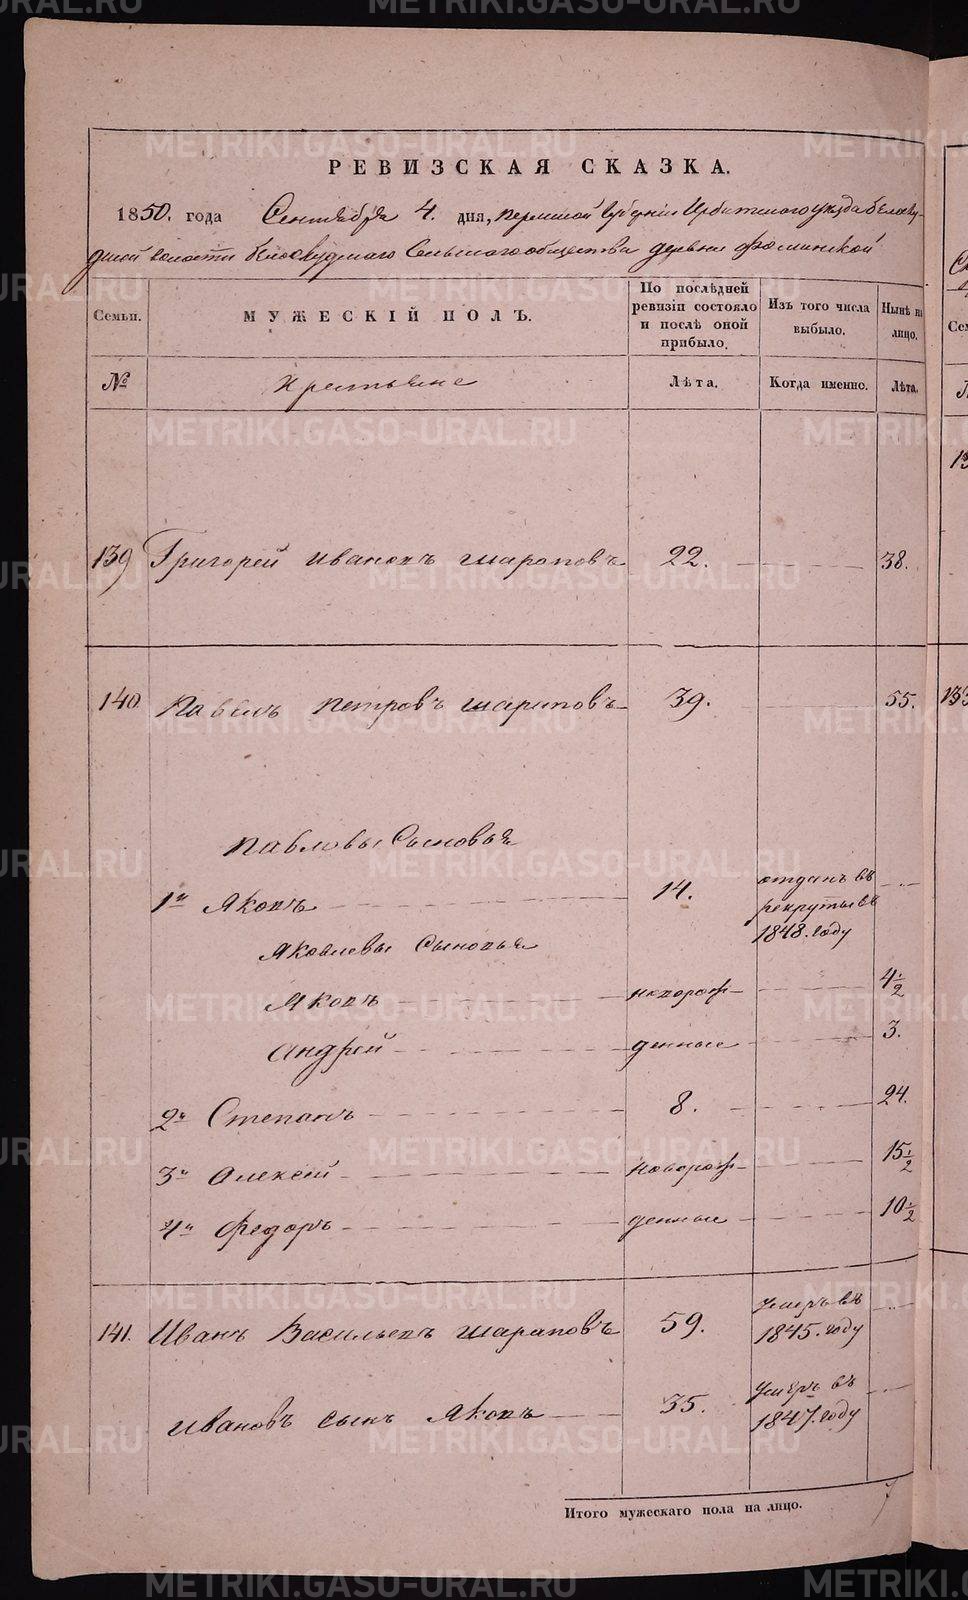 РЕВИЗСКАЯ СКАЗКА.
1850. года Сентября 4. дня, Пермской Губернiи Ирбитского уѣзда Белослу-
дской волости Белослудского Сельского общества деревни Фоминской
Семьи. МУЖЕСКІЙ ПОЛЪ. По послѣдней ревизіи состояло и послѣ оной прибыло. Изъ того числа выбыло. Нынѣ на лицо.
№ Крестьяне Лѣта. Когда именно. Лѣта.
139 Григорей Ивановъ Шараповъ 22. 38.
140 Павелъ Петровъ Шараповъ 39. 55.
Павловы Сыновья
1й Яковъ 14. отданъ въ рекруты въ 1848. году
Яковлевы Сыновья
Яковъ новорож- 4 1/2
Андрей денные 3.
2й Степанъ 8. 24.
3й Алексей новорож- 15 1/2
4й Федоръ денные 10 1/2
141. Иванъ Васильевъ Шараповъ 59. Умеръ въ 1845. году
Ивановъ сынъ Яковъ 35. Умеръ въ 1847. году
Итого мужескаго пола на лицо. 7
METRIKI.GASO-URAL.RU